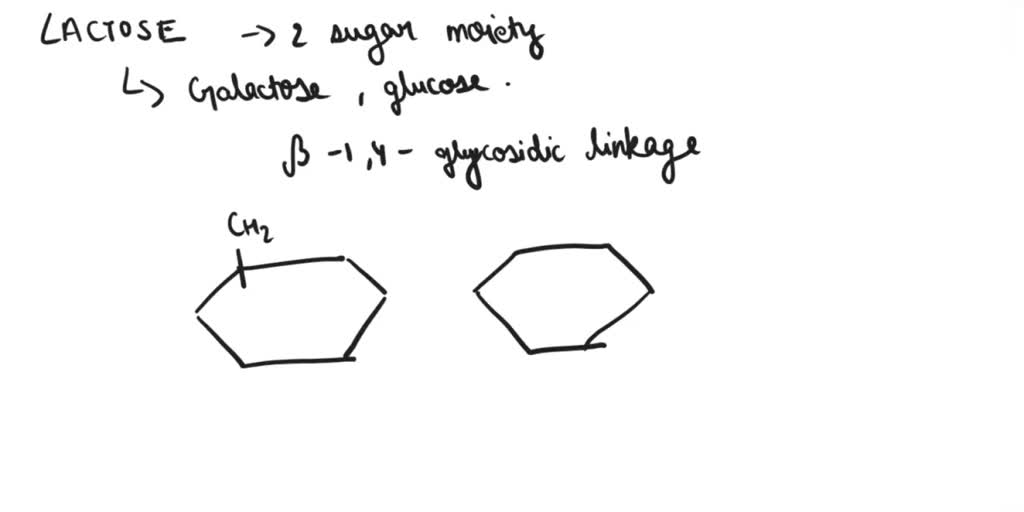 LACTOSE -> 2 sugar moiety
↳ Galactose, glucose.
β-1,4- glycosidic linkage
CH₂